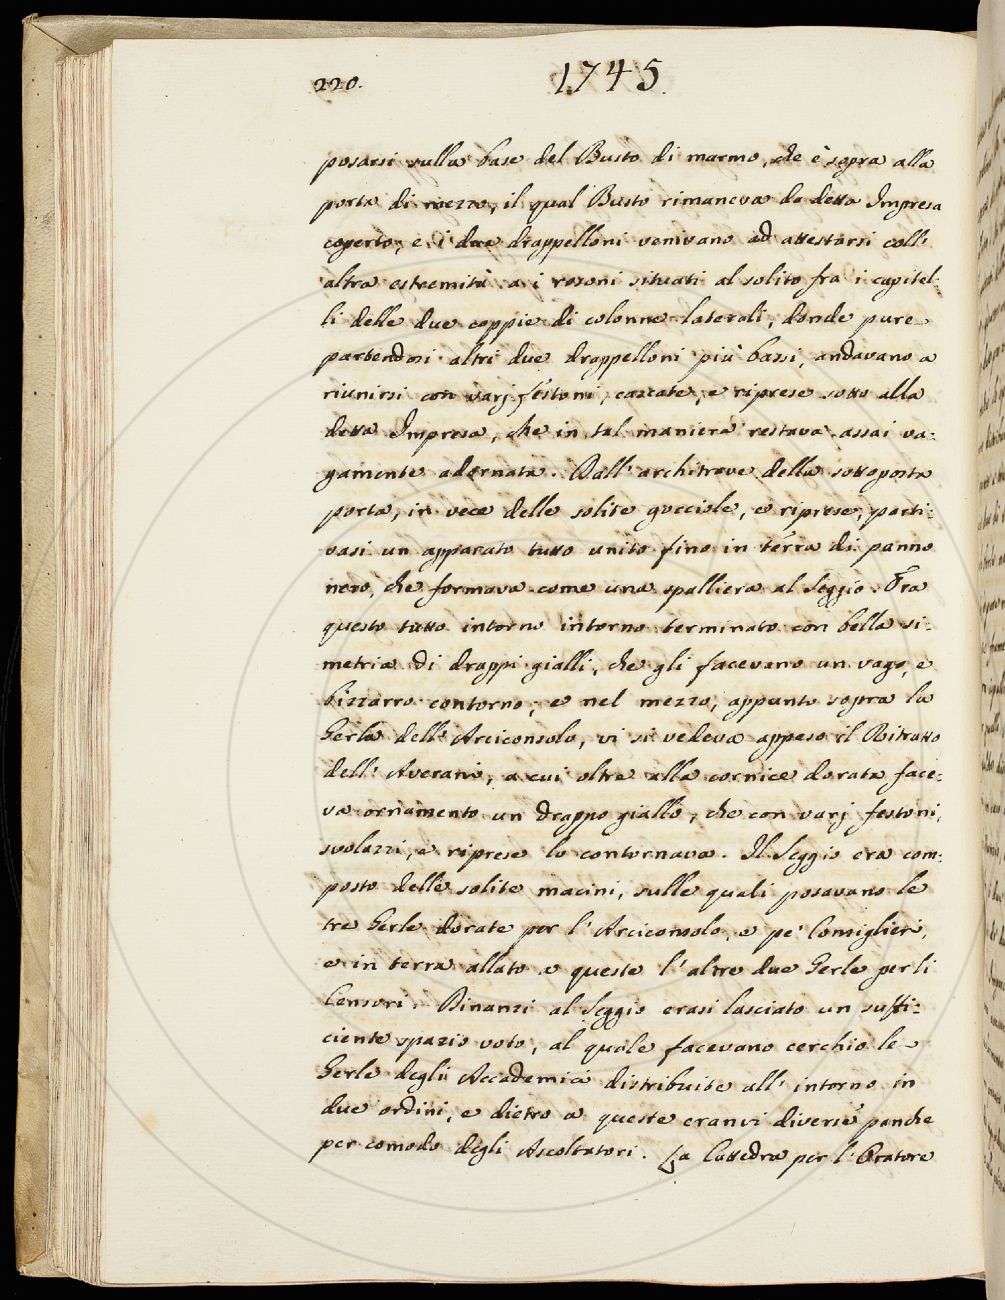 220. 1745.
posarsi sulla base del Busto di marmo, che è sopra alla
porta di mezzo, il qual Busto rimaneva da detta Impresa
coperto; e i due drappelloni venivano ad attestarsi coll'
altra estremità a i rosoni situati al solito fra i capitel-
li delle due coppie di colonne laterali, donde pure
partendosi altri due drappelloni più bassi, andavano a
riunirsi con varj festoni, cascate, e riprese sotto alla
detta Impresa, che in tal maniera restava assai va:
gamente adornata. Dall' architrave della sottoposta
porta, in vece delle solite gocciole, e riprese, parti:
vasi un apparato tutto unito fino in terra di panno
nero, che formava come una spalliera al Seggio. Era
questo tutto intorno intorno terminato con bella si:
metria di drappi gialli, che gli facevano un vago, e
bizzarro contorno; e nel mezzo, appunto sopra la
Gerla dell' Arciconsolo, vi si vedeva appeso il Ritratto
dell' Averani, a cui oltre alla cornice dorata face:
va ornamento un drappo giallo, che con varj festoni,
svolazzi, e riprese lo contornava. Il Seggio era com:
posto delle solite macini, sulle quali posavano le
tre Gerle dorate per l' Arciconsolo, e pe' Consiglieri,
e in terra allato a queste l' altre due Gerle per li
Censori. Dinanzi al Seggio erasi lasciato un suffi:
ciente spazio voto, al quale facevano cerchio le
Gerle degli Accademici distribuite all' intorno in
due ordini, e dietro a queste eranvi diverse panche
per comodo degli Ascoltatori. La Cattedra per l' Oratore